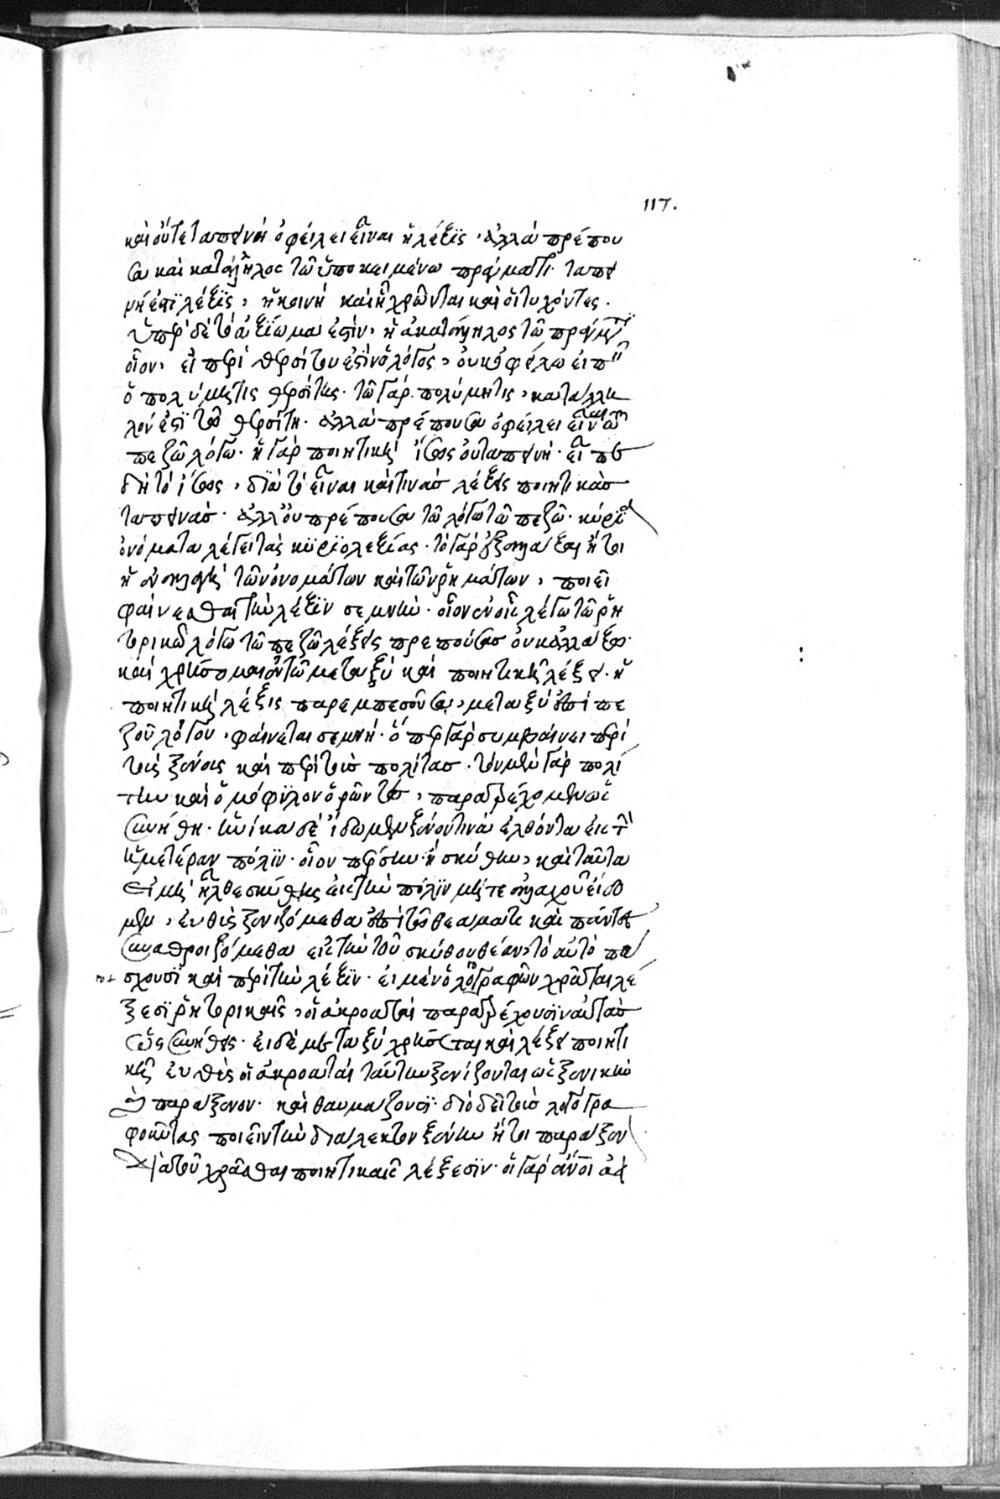 117.
καὶ οὔτε ταπεινὴ ὀφείλει εἶναι ἡ λέξις, ἀλλὰ πρέπου
σα καὶ κατάλληλος τῶ ὑποκειμένω πράγματι. ταπει
νή ἐστι λέξις, ἡ κοινὴ καὶ ἧ χρῶνται καὶ οἱ τυχόντες.
ὑπὲρ δὲ τὸ ἀξίωμα ἐστὶν, ἡ ἀκατάλληλος τῶ πράγματι
οἷον, εἰ περὶ θερσίτου ἐστὶν ὁ λόγος, οὐκ ὀφείλω εἰπεῖν
ὁ πολύμητις θερσίτης. τὸ γὰρ πολύμητις, κατάλλη
λόν ἐστι τῶ θερσίτη. ἀλλὰ πρέπουσα ὀφείλει εἶναι τῶ
πεζῶ λόγω. ἡ γὰρ ποιητικὴ ἴσως οὐ ταπεινή. εἶπε
δὴ τὸ ἴσως, διὰ τὸ εἶναι καί τινας λέξεις ποιητικὰς
ταπεινάς. ἀλλ' οὐ πρέπουσα τῶ λόγω τῶ πεζῶ. κύρια
ὀνόματα λέγει τὰς κυριολεξίας. τὸ γὰρ ἐξαλλάξαι ἤτοι
ἡ ἐναλλαγὴ τῶν ὀνομάτων καὶ τῶν ῥημάτων, ποιεῖ
φαίνεσθαι τὴν λέξιν σεμνήν. οἷον ἐν οἷς λέγω τῶ ῥη
τορικῶ λόγω τῶ πεζῶ λέξεις πρεπούσας οὐκ ἀλλάξω.
καὶ χρήσομαι ἐν τῶ μεταξὺ καὶ ποιητικῆ λέξει. ἡ
ποιητικὴ λέξις παρεμπεσοῦσα, μεταξὺ ἐπὶ πε
ζοῦ λόγου, φαίνεται σεμνή. ὅπερ γὰρ συμβαίνει περὶ
τοὺς ξένους καὶ περὶ τοὺς πολίτας. τὸν μὲν γὰρ πολί
την καὶ ὁμόφυλον ὁρῶντες, παρατρέχομεν ὡς
συνήθη. ἡνίκα δὲ ἴδωμεν ξένον τινὰ ἐλθόντα εἰς τὴν
ἡμετέραν πόλιν. οἷον πέρσην ἢ σκύθην, καὶ ταῦτα
εἰ μὴ ἦλθε σκύθης εἰς τὴν πόλιν μήτε
μεν, εὐθὺς ξενιζόμεθα ἐπὶ τῶ θεάματι καὶ πάντες
συναθροιζόμεθα εἰς τὴν τοῦ σκύθου θέαν, τὸ αὐτὸ πά
σχουσι καὶ περὶ τὴν λέξιν. εἰ μὲν ὁ λογογραφῶν χρᾶται λέ
ξεσι ῥητορικαῖς, οἱ ἀκροαταὶ παρατρέχουσιν αὐτὰς
ὡς συνήθεις. εἰ δὲ μεταξὺ χρήσεται καὶ λέξει ποιητι
κῆ εὐθὺς οἱ ἀκροαταὶ ταύτην ξενίζονται ὡς ξενικὴν
ἢ παράξενον. καὶ θαυμάζουσι. διὸ δεῖ τοὺς λογογρα
φοῦντας ποιεῖν τὴν διάλεκτον ξένην ἤτοι παράξενον
διὰ τοῦ χρᾶσθαι ποιητικαῖς λέξεσιν. οἱ γὰρ ἄνοι ἀεὶ